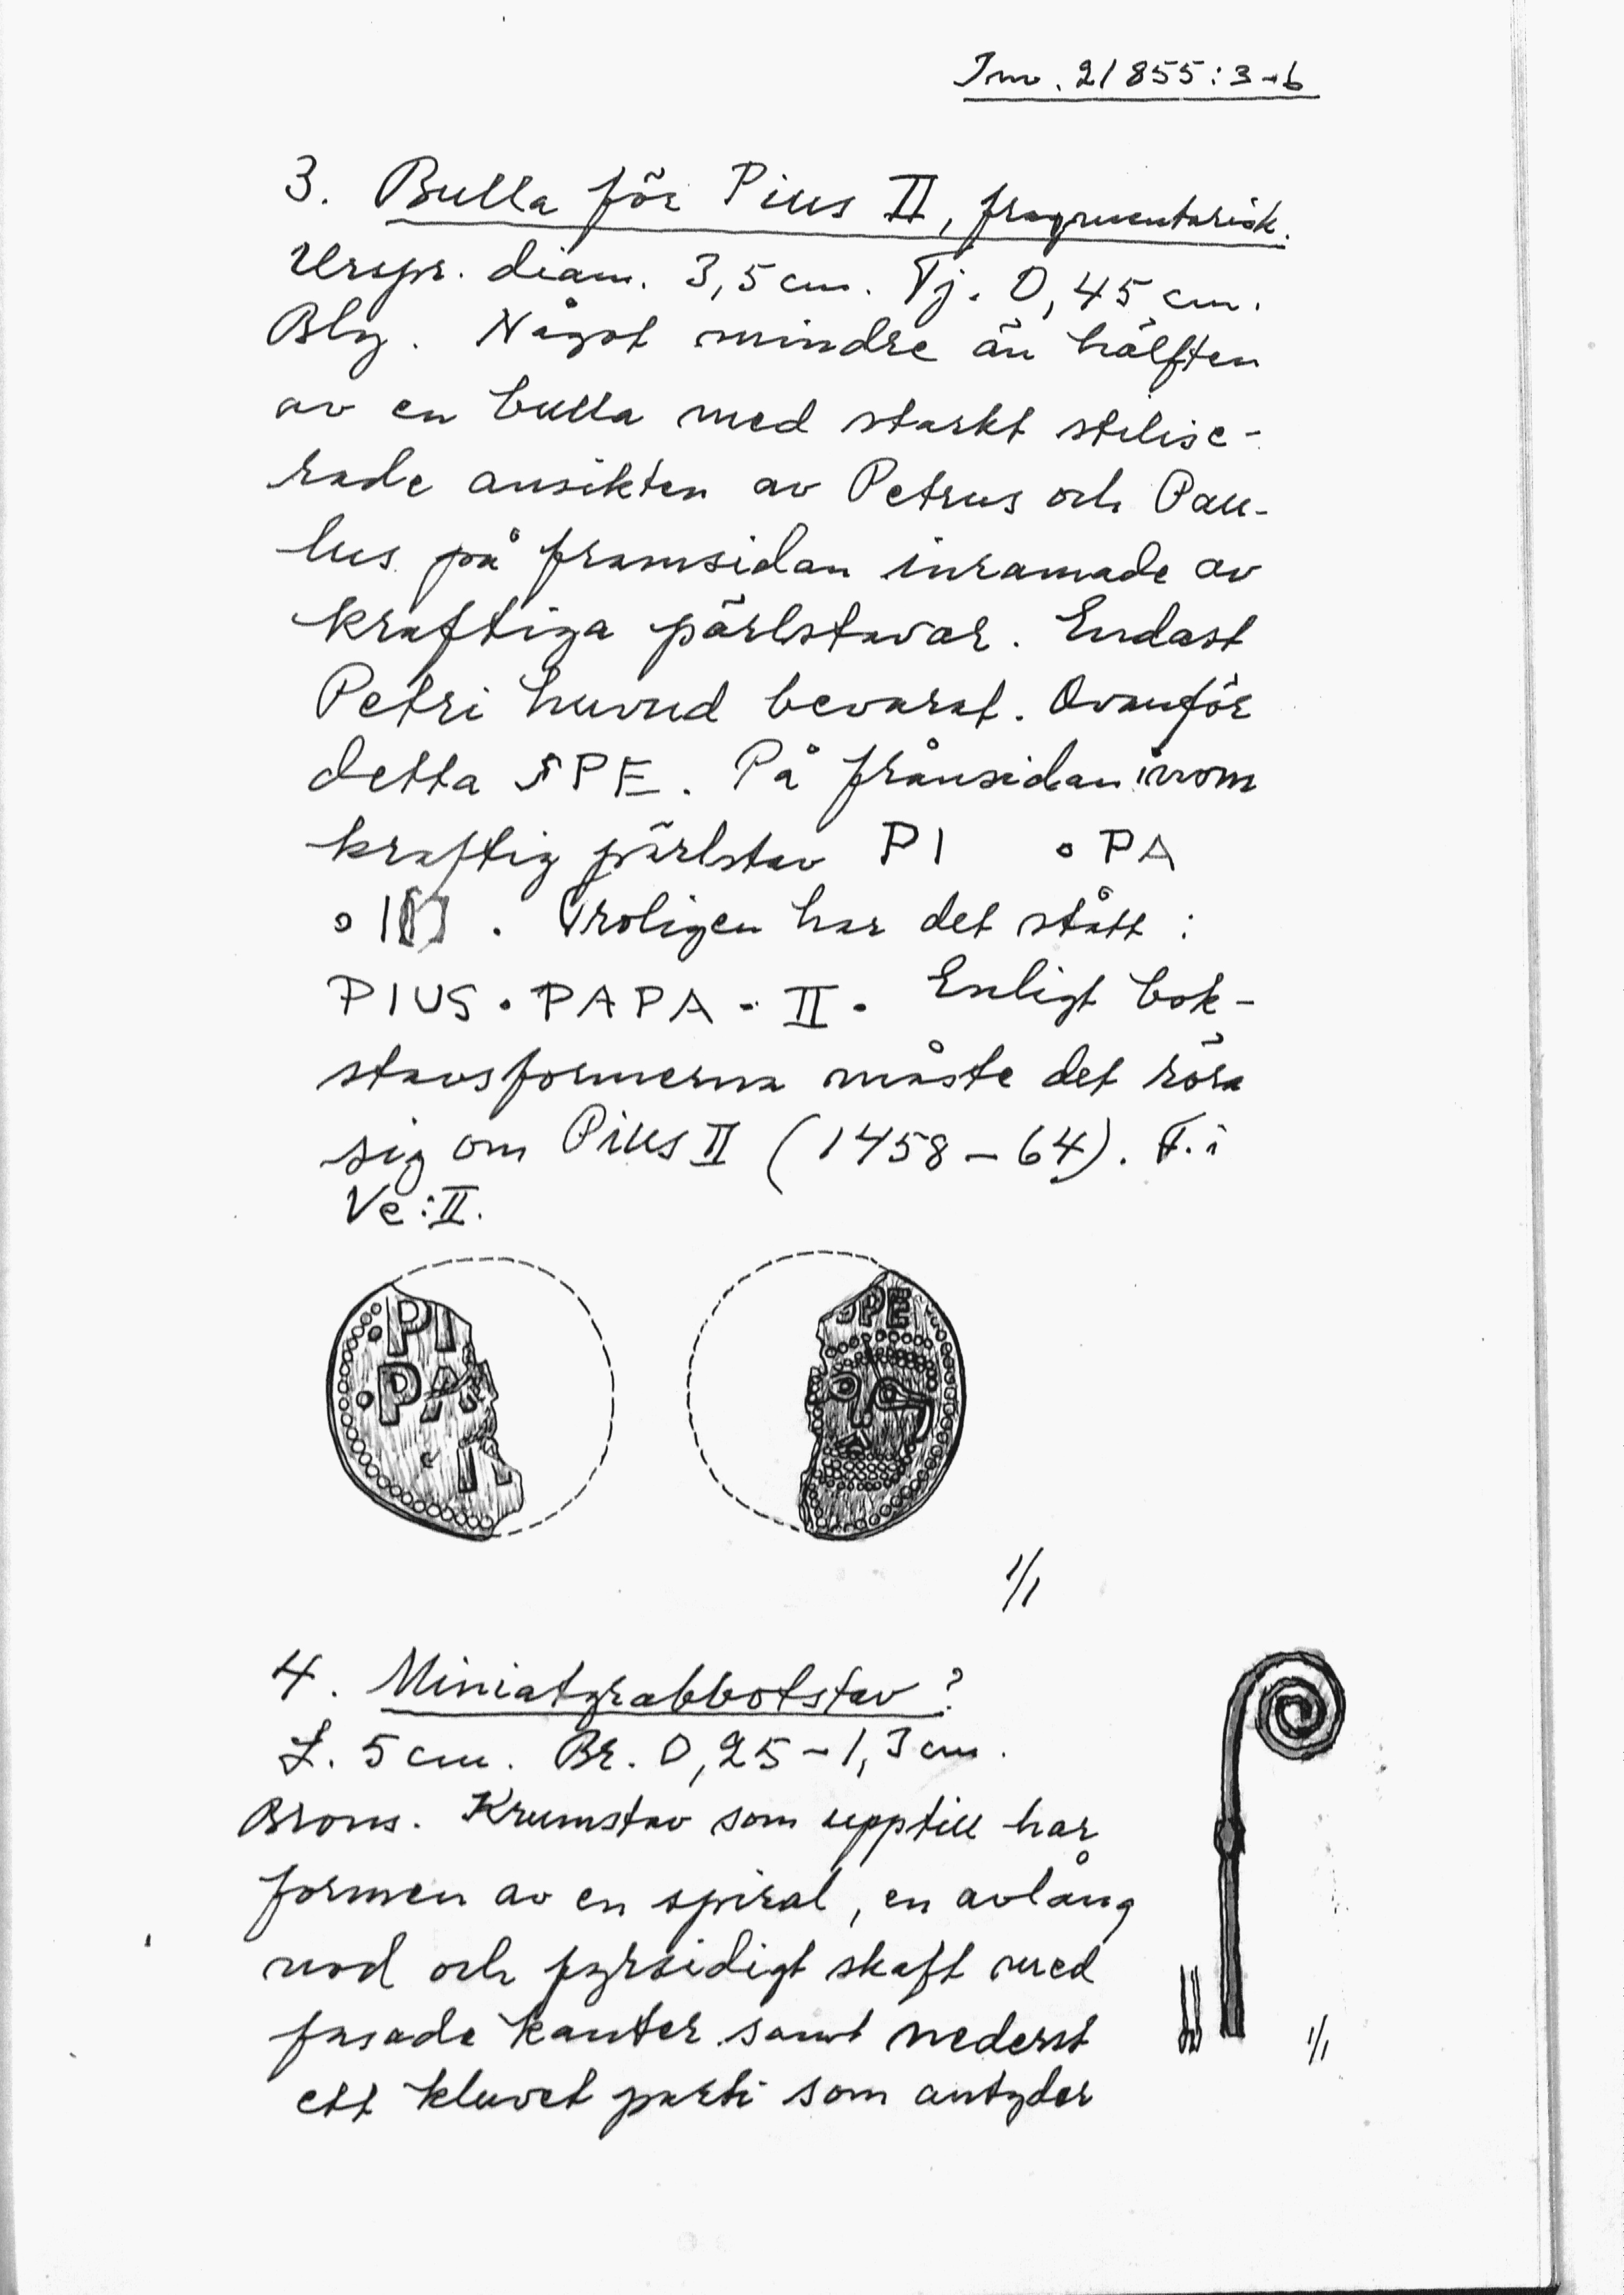 Inv. 21855:3-6
3. Bulla för Pius II, fragmentarisk.
Urspr. diam. 3,5 cm. Tj. 0,45 cm.
Bly. Något mindre än hälften
av en bulla med starkt stilise-
rade ansikten av Petrus och Pau-
lus på framsidan inramade av
kraftiga pärlstavar. Endast
Petri huvud bevarat. Ovanför
detta SPE. På frånsidan inom
kraftig pärlstav PI ∘ PA
∘ I[I] . Troligen har det stått :
PIUS • PAPA • II • Enligt bok-
stavsformerna måste det röra
sig om Pius II (1458-64). F. i
Ve:II.
PI
PA
SPE
1/1
4. Miniatyrabbotstav?
L. 5 cm. Br. 0,25-1,3 cm.
Brons. Krumstav som upptill har
formen av en spiral, en avlång
nod och fyrsidigt skaft med
fasade kanter samt nederst
ett kluvet parti som antyder
1/1